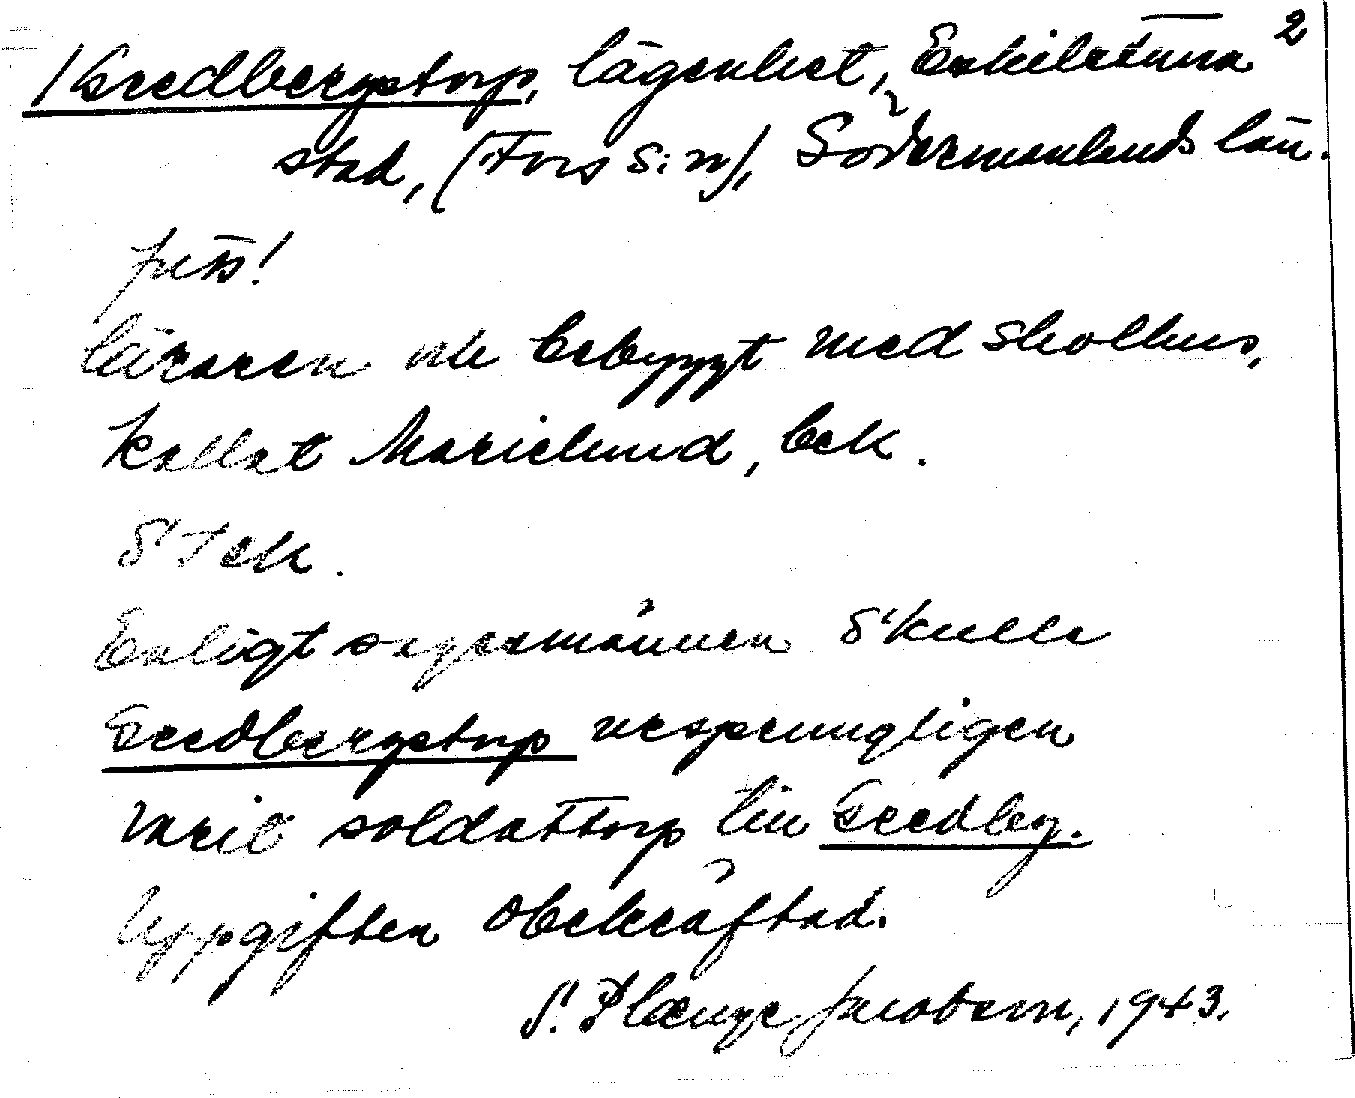 /Gredbergstorp, lägenhet, Eskilstuna 2
stad, (Fors s:n), Södermanlands län.
fuss!
läraren och bebyggt med skolhus,
kallat Marielund, bek.
S T ek.
Enligt sagesmännen skulle
Gredbergstorp ursprungligen
varit soldattorp till Gredby.
Uppgiften obekräftad.
S. Plænge Jacobson, 1943.